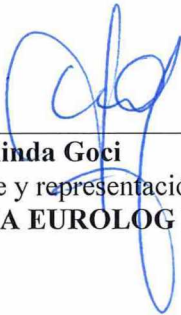 inda Goci
e y representació
A EUROLOG